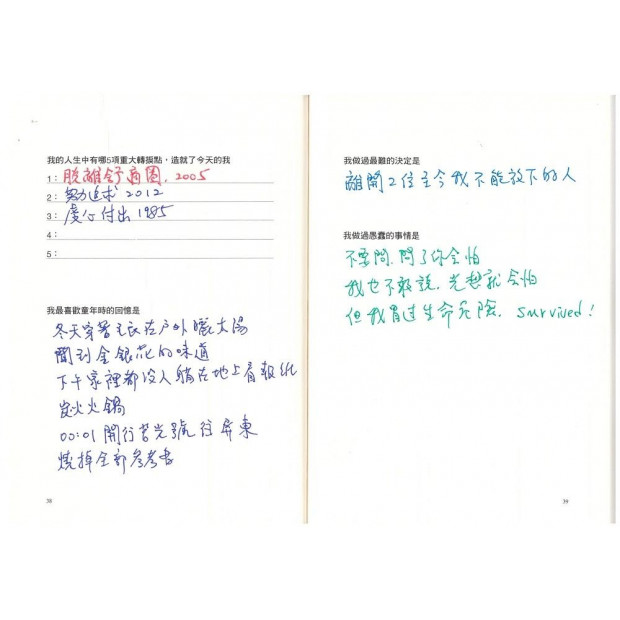 我的人生中有哪5項重大轉捩點，造就了今天的我
1： 脫離舒適圈, 2005
2： 努力追求 2012
3： 虔心付出 1985
4：
5：
我最喜歡童年時的回憶是
冬天穿著毛衣在戶外曬太陽
聞到金銀花的味道
下午家裡都沒人躺在地上看報紙
炭火火鍋
00:01 開行莒光號往屏東
燒掉全部參考書
38
我做過最難的決定是
離開2位至今我不能放下的人
我做過愚蠢的事情是
不要問, 問了你会怕
我也不敢說, 光想就会怕
但我冒过生命危險, survived!
39